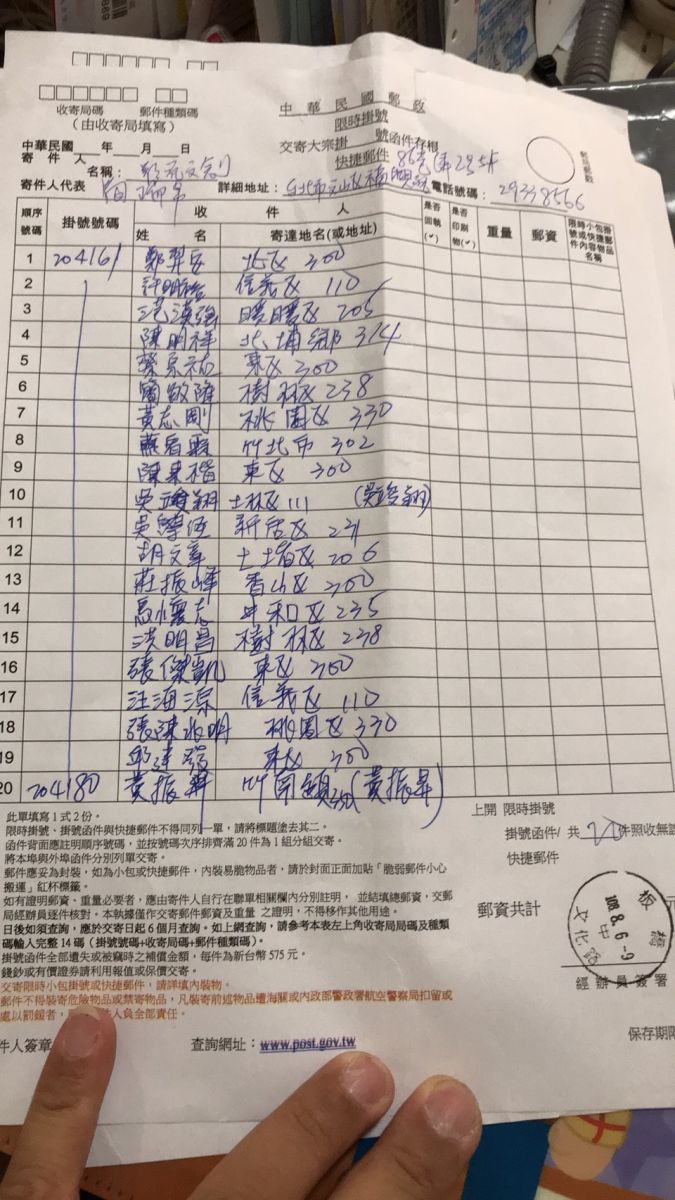 收寄局碼 郵件種類碼
(由收寄局填寫)
中華民國郵政
限時掛號
交寄大宗掛 號函件存根
快捷郵件
中華民國 年 月 日
寄件人
名稱:
寄件人代表
詳細地址:
電話號碼: 29338566
順序號碼 掛號號碼 收件人 是否回執(✓) 是否印刷物(✓) 重量 郵資
姓名 寄達地名(或地址)
1 204161 北區 300
2 信義區 110
3 洪漢強 暖暖區 205
4 陳明祥 北埔鄉 314
5 東區 300
6 簡敏隆 樹林區 238
7 黃志剛 桃園區 330
8 竹北市 302
9 東區 300
10 士林區 111
11 新店區 231
12 胡文章 土城區 206
13 莊振峰 香山區 300
14 馬懷志 中和區 235
15 洪明昌 樹林區 238
16 張傑凱 東區 300
17 汪海源 信義區 110
18 張陳兆明 桃園區 330
19 邱建發 東區 300
20 204180 黃振昇 竹南鎮 350 (黃振昇)
此單填寫1式2份。
限時掛號、掛號函件與快捷郵件不得同列一單,請將標題塗去其二。
函件背面應註明順序號碼,並按號碼次序排齊滿20件為1組分組交寄。
將本埠與外埠函件分別列單交寄。
郵件應妥為封裝,如為小包或快捷郵件,內裝易脆物品者,請於封面正面加貼「脆弱郵件小心
搬運」紅杯標籤。
如有證明郵資、重量必要者,應由寄件人自行在聯單相關欄內分別註明,並結填總郵資,交郵
局經辦員逐件核對。本執據僅作交寄郵件郵資及重量之證明,不得移作其他用途。
日後如須查詢,應於交寄日起6個月查詢。如上網查詢,請參考本表左上角收寄局局碼及種類
碼輸入完整14碼(掛號號碼+收寄局碼+郵件種類碼)。
掛號函件全部遺失或被竊時之補償金額,每件為新台幣575元。
錢鈔或有價證券請利用報值或保價交寄。
交寄限時小包掛號或快捷郵件,請詳填內裝物。
郵件不得裝寄危險物品或禁寄物品,凡裝寄前述物品遭海關或內政部警政署航空警察局扣留或
處以罰鍰者,
件人負全部責任。
上開 限時掛號
掛號函件/ 共 20 件照收無誤
快捷郵件
郵資共計 元
板橋
108.8.6-9
中
文化路
經辦員簽署
件人簽章
查詢網址:www.post.gov.tw
保存期限